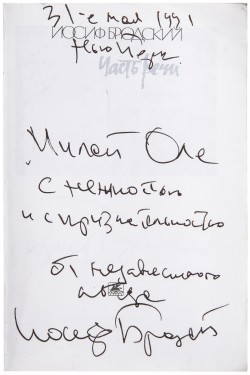 31-е мая 1991
ИОСИФ БРОДСКИЙ
Нью Йорк
Часть речи
Милой Оле
с нежностью
и с признательностью
от неизвестного
Иосиф Бродский